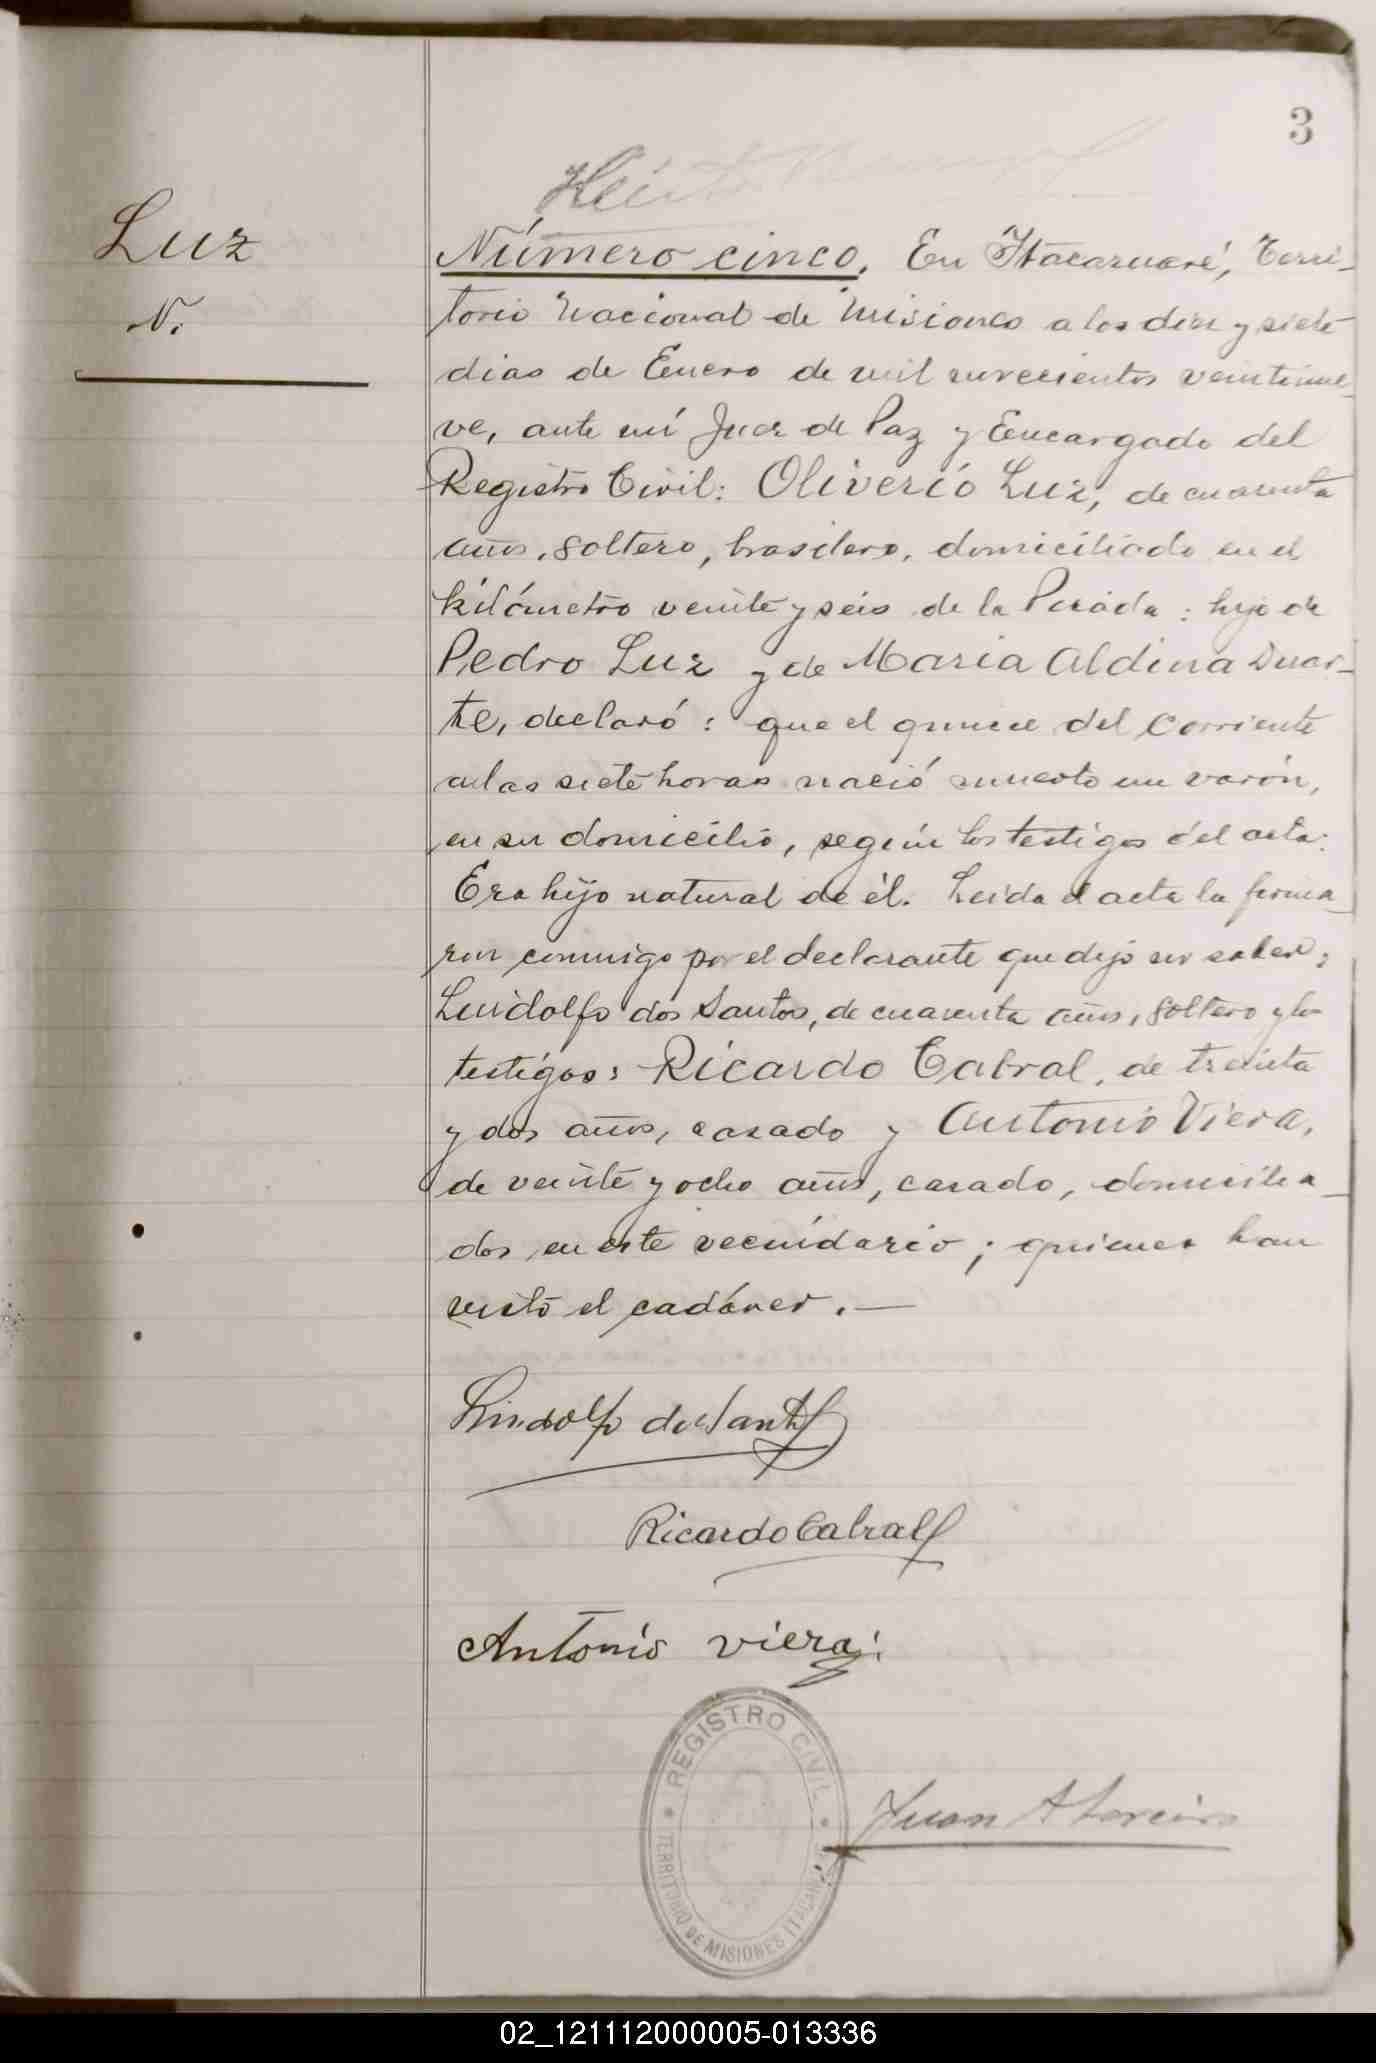 3
Luz
N.
Número cinco. En Itacaruaré, Terri-
torio Nacional de Misiones a los diez y siete
dias de Enero de mil novecientos veintinue-
ve, ante mí Juez de Paz y Encargado del
Registro Civil: Oliverio Luz, de cuarenta
años, soltero, brasilero, domiciliado en el
kilómetro veinte y seis de la Picada: hijo de
Pedro Luz y de Maria Aldina Duar-
te, declaró: que el quince del corriente
a las siete horas nació muerto un varón,
en su domicilio, según los testigos del acta.
Era hijo natural de él. Leida el acta la firma-
ron conmigo por el declarante que dijo no saber:
Luidolfo dos Santos, de cuarenta años, soltero y los
testigos: Ricardo Cabral, de treinta
y dos años, casado y Antonio Viera,
de veinte y ocho años, casado, domicilia-
dos en este vecindario; quienes han
visto el cadáver.—
Lindolfo dos Santos
Ricardo Cabral
Antonio viera
REGISTRO CIVIL
TERRITORIO DE MISIONES ITACARUARE
Juan A
02_121112000005-013336